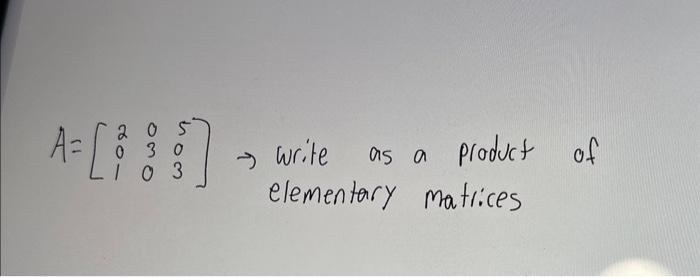 A= [ 2 0 5
0 3 0
1 0 3 ] → write as a product of
elementary matrices